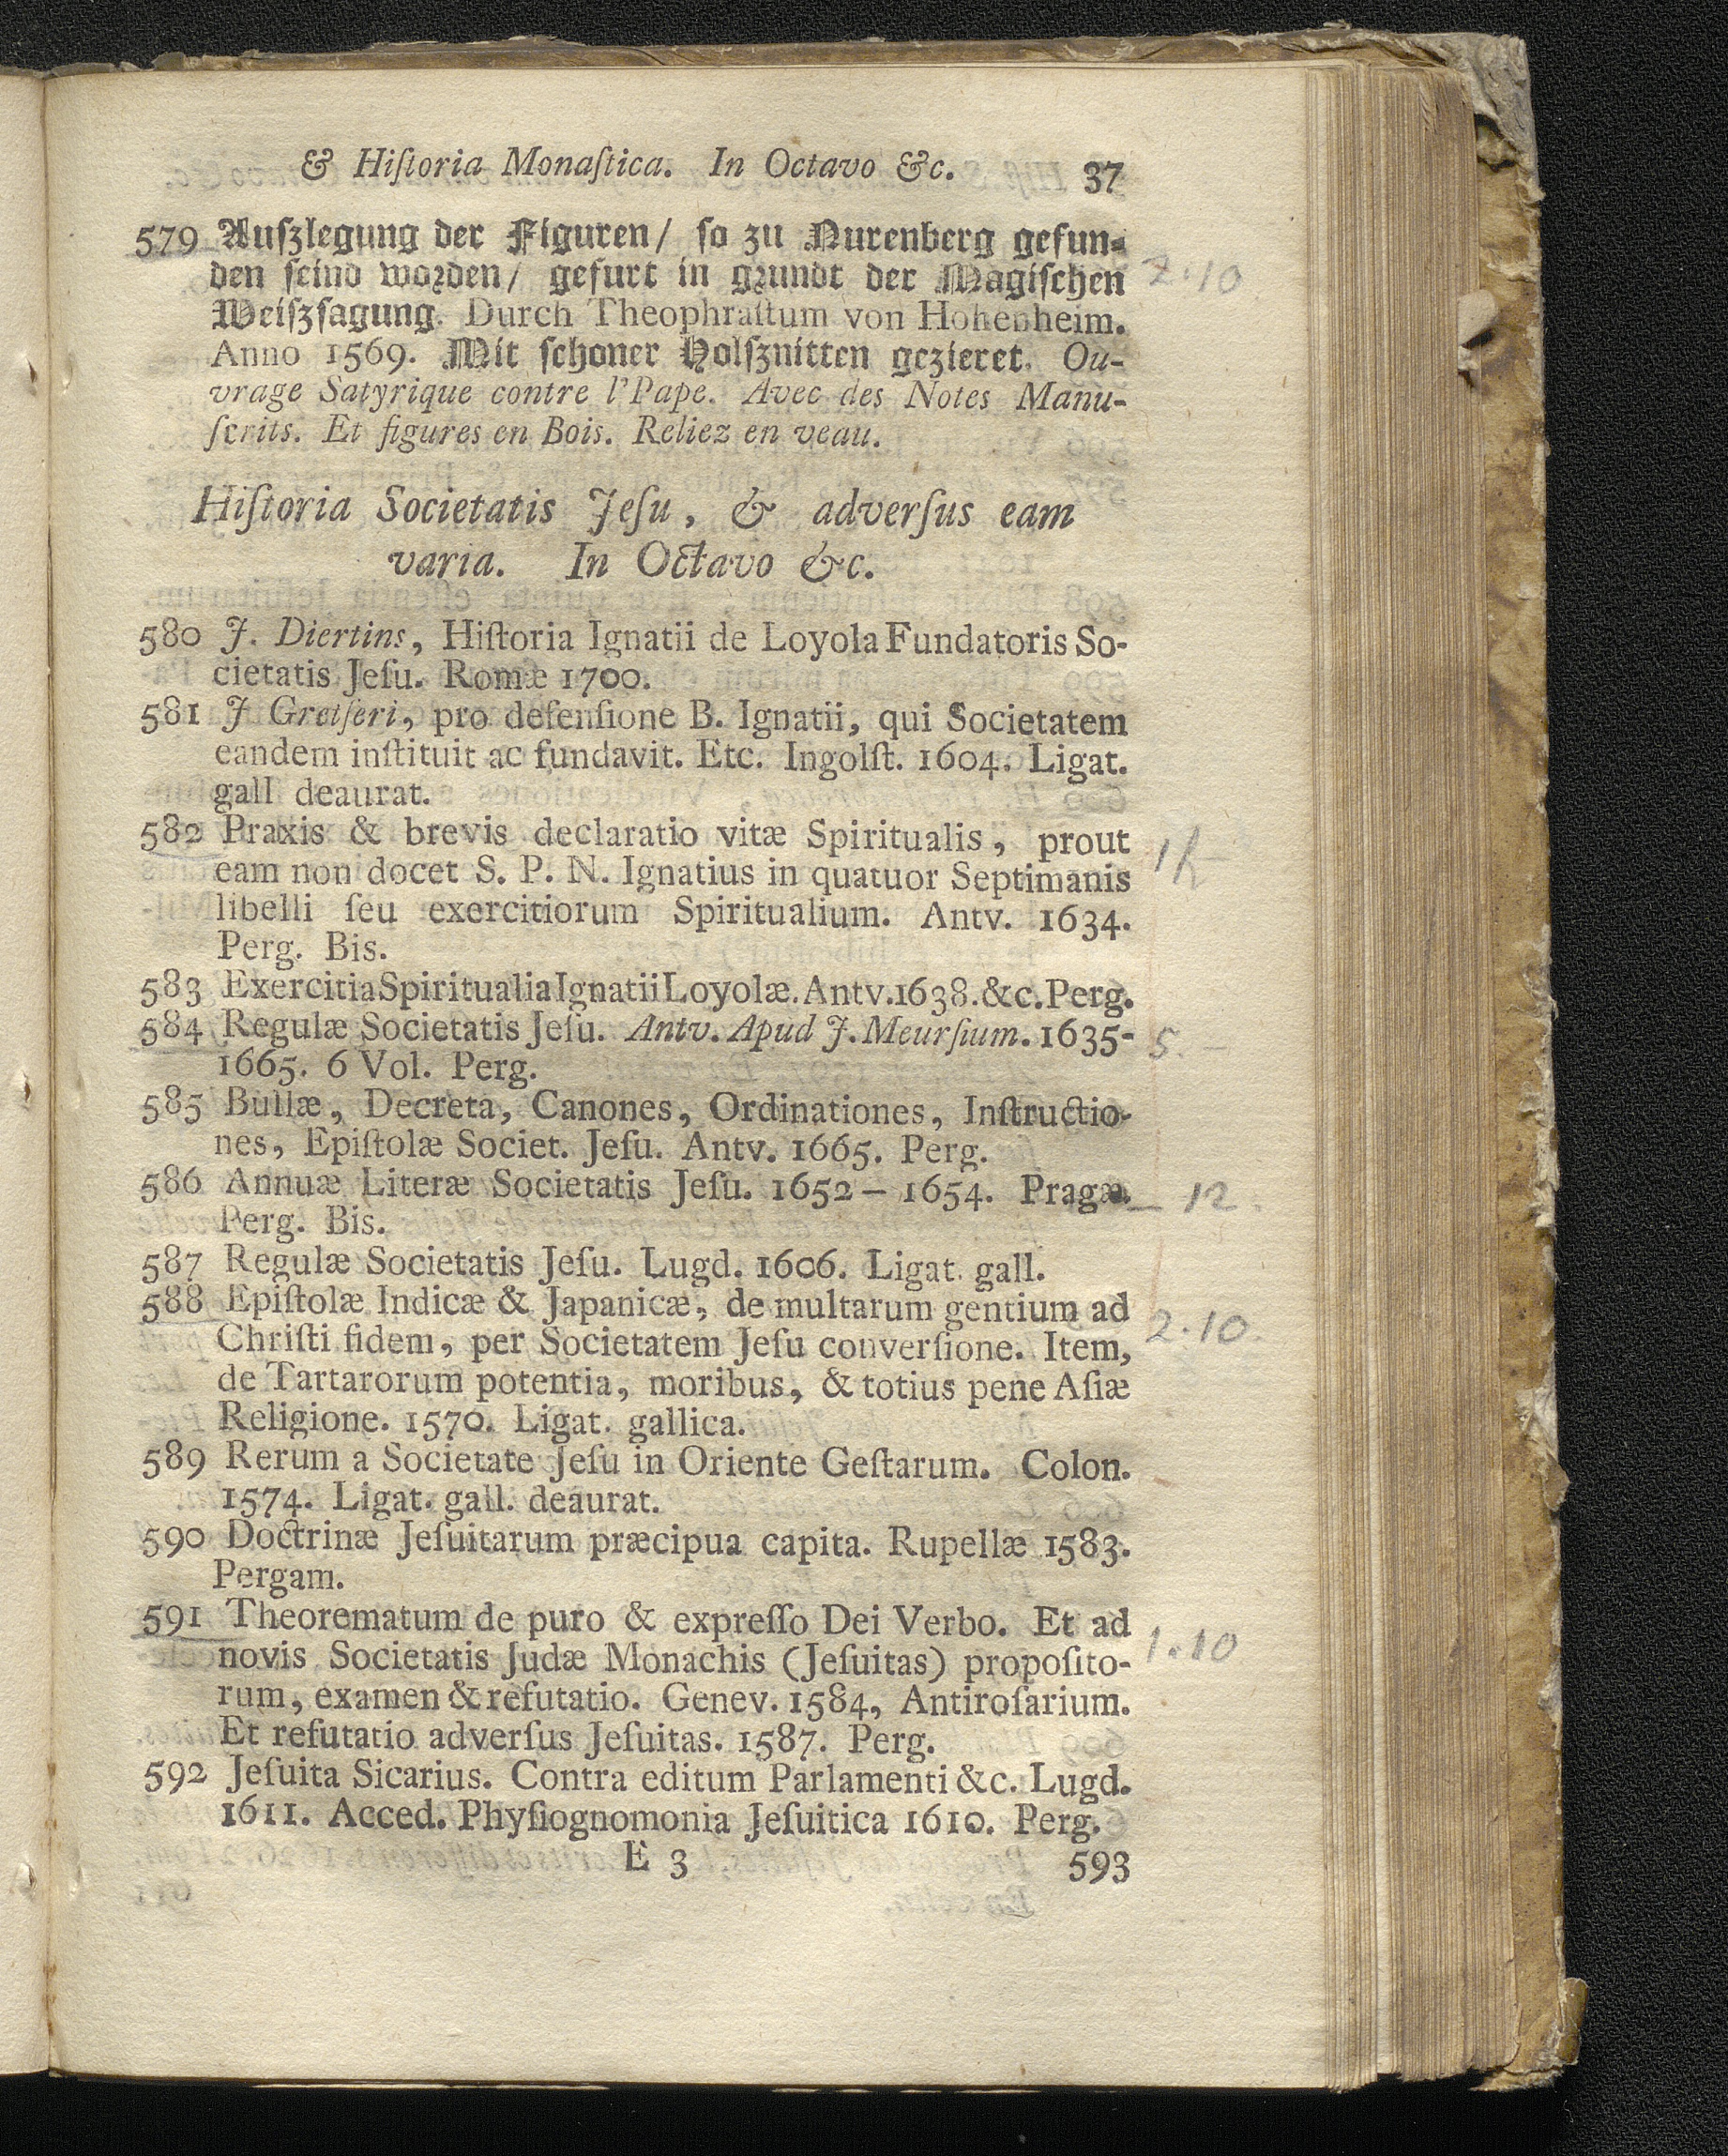 & Hiſtoria Monaſtica. In Octavo &c. 37
579 Auſzlegung der Figuren/ ſo zu Nurenberg gefun-
den ſeind worden/ gefurt in grundt der Magiſchen 2.10
Weiſzſagung. Durch Theophraſtum von Hohenheim.
Anno 1569. Mit ſchoner Holſznitten gezieret. Ou-
vrage Satyrique contre l'Pape. Avec des Notes Manu-
ſcrits. Et figures en Bois. Reliez en veau.
Hiſtoria Societatis Jeſu, & adverſus eam
varia. In Octavo &c.
580 J. Diertins, Hiſtoria Ignatii de Loyola Fundatoris So-
cietatis Jeſu. Romæ 1700.
581 J Gretſeri, pro defenſione B. Ignatii, qui Societatem
eandem inſtituit ac fundavit. Etc. Ingolſt. 1604. Ligat.
gall deaurat.
582 Praxis & brevis declaratio vitæ Spiritualis, prout
eam non docet S. P. N. Ignatius in quatuor Septimanis
libelli ſeu exercitiorum Spiritualium. Antv. 1634.
Perg. Bis.
583 Exercitia Spiritualia Ignatii Loyolæ. Antv. 1638. &c. Perg.
584 Regulæ Societatis Jeſu. Antv. Apud J. Meurſium. 1635- 5.-
1665. 6 Vol. Perg.
585 Bullæ, Decreta, Canones, Ordinationes, Inſtructio-
nes, Epiſtolæ Societ. Jeſu. Antv. 1665. Perg.
586 Annuæ Literæ Societatis Jeſu. 1652 – 1654. Pragæ. – 12.
Perg. Bis.
587 Regulæ Societatis Jeſu. Lugd. 1606. Ligat. gall.
588 Epiſtolæ Indicæ & Japanicæ, de multarum gentium ad 2.10.
Chriſti fidem, per Societatem Jeſu converſione. Item,
de Tartarorum potentia, moribus, & totius pene Aſiæ
Religione. 1570. Ligat. gallica.
589 Rerum a Societate Jeſu in Oriente Geſtarum. Colon.
1574. Ligat. gall. deaurat.
590 Doctrinæ Jeſuitarum præcipua capita. Rupellæ 1583.
Pergam.
591 Theorematum de puro & expreſſo Dei Verbo. Et ad 1.10
novis Societatis Judæ Monachis (Jeſuitas) propoſito-
rum, examen & refutatio. Genev. 1584, Antiroſarium.
Et refutatio adverſus Jeſuitas. 1587. Perg.
592 Jeſuita Sicarius. Contra editum Parlamenti &c. Lugd.
1611. Acced. Phyſiognomonia Jeſuitica 1610. Perg.
E 3 593